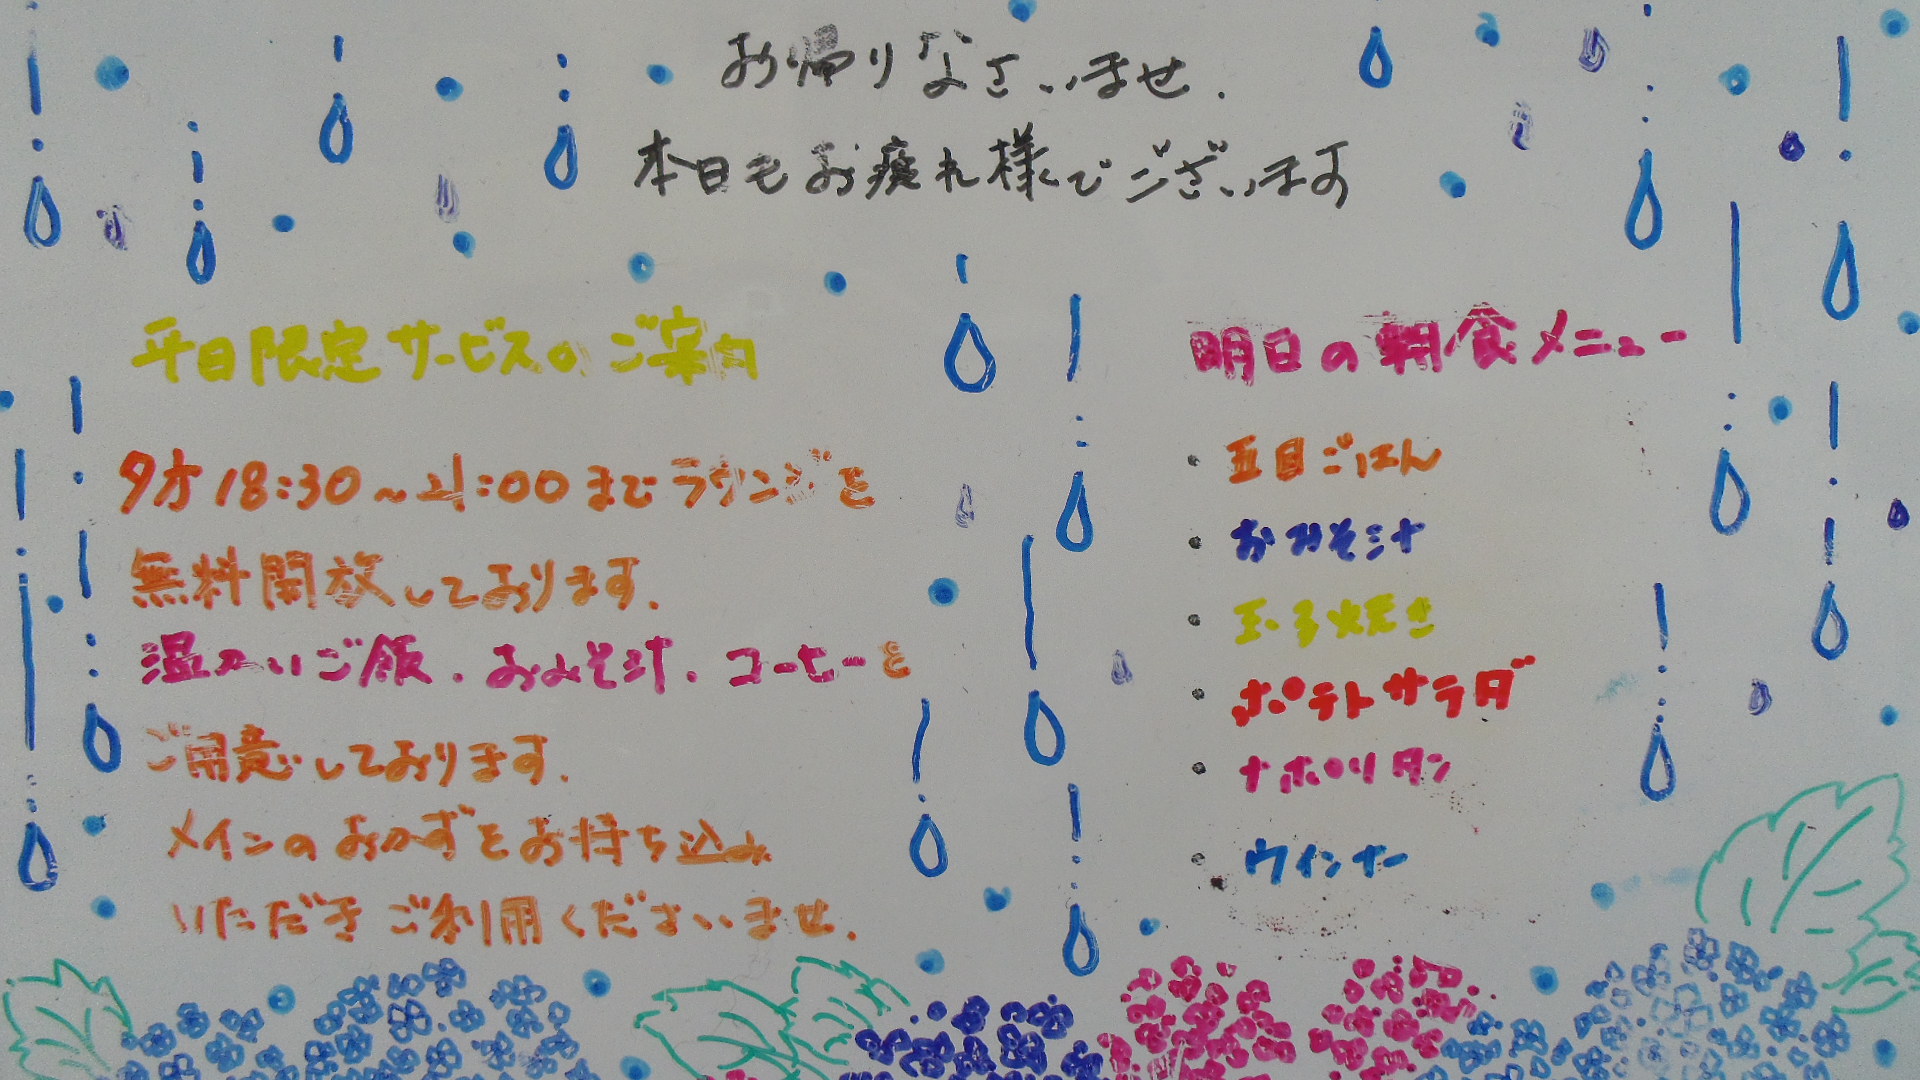 お帰りなさいませ.
本日もお疲れ様でございます
平日限定サービスのご案内
夕方18:30～21:00までラウンジを
無料開放しております.
温かいご飯.おみそ汁.コーヒーを
ご用意しております.
メインのおかずをお持ち込み
いただきご利用くださいませ.
明日の朝食メニュー
・五目ごはん
・おみそ汁
・玉子焼き
・ポテトサラダ
・ナポリタン
・ウインナー